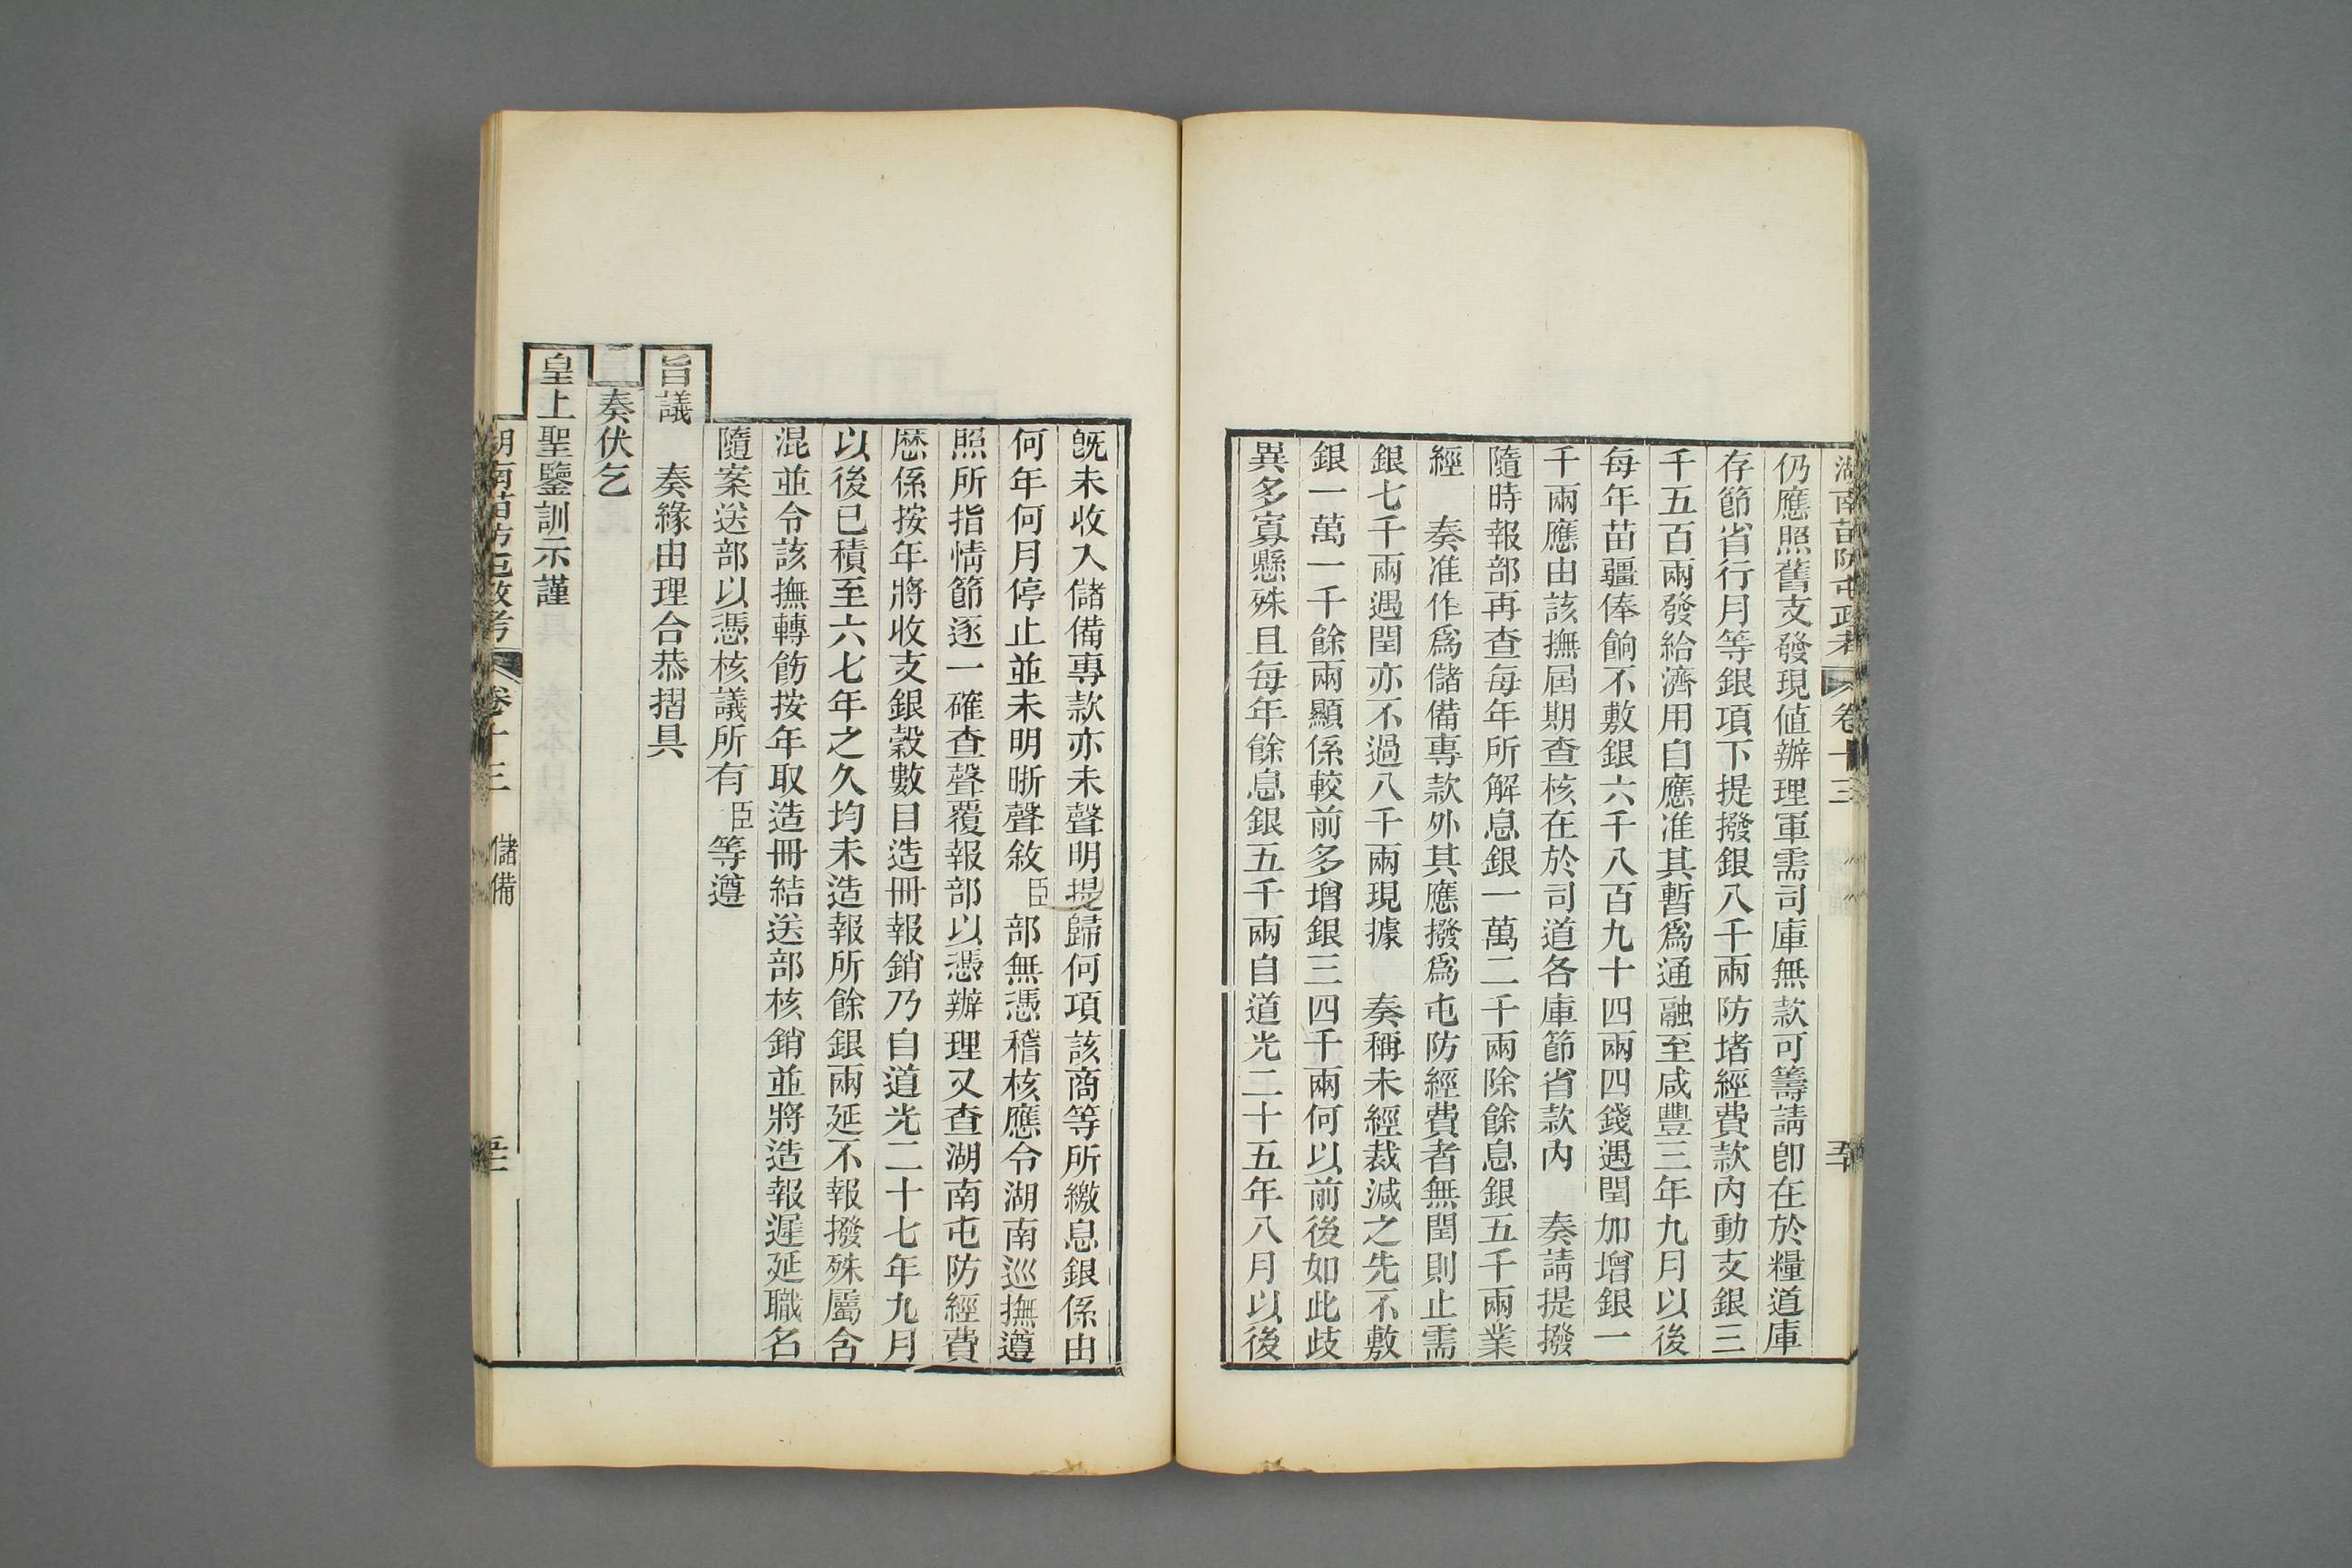 湖南苗防屯政考 卷十三
仍應照舊支發現値辦理軍需司庫無款可籌請卽在於糧道庫
存節省行月等銀項下提撥銀八千兩防堵經費款內動支銀三
千五百兩發給濟用自應准其暫爲通融至咸豐三年九月以後
每年苗疆俸餉不敷銀六千八百九十四兩四錢遇閏加增銀一
千兩應由該撫屆期查核在於司道各庫節省款內 奏請提撥
隨時報部再查每年所解息銀一萬二千兩除餘息銀五千兩業
經 奏准作爲儲備專款外其應撥爲屯防經費者無閏則止需
銀七千兩遇閏亦不過八千兩現據 奏稱未經裁減之先不敷
銀一萬一千餘兩顯係較前多增銀三四千兩何以前後如此歧
異多寡懸殊且每年餘息銀五千兩自道光二十五年八月以後
旣未收入儲備專款亦未聲明提歸何項該商等所繳息銀係由
何年何月停止並未明晰聲敘臣部無憑稽核應令湖南巡撫遵
照所指情節逐一確查聲覆報部以憑辦理又查湖南屯防經費
歷係按年將收支銀穀數目造冊報銷乃自道光二十七年九月
以後已積至六七年之久均未造報所餘銀兩延不報撥殊屬含
混並令該撫轉飭按年取造冊結送部核銷並將造報遲延職名
隨案送部以憑核議所有臣等遵
旨議 奏緣由理合恭摺具
奏伏乞
皇上聖鑒訓示謹
湖南苗防屯政考 卷十三 儲備